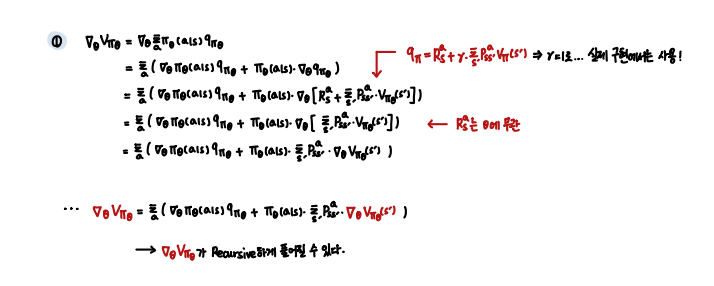 ① ∇θ Vπθ = ∇θ Σa πθ(a|s) qπθ
= Σa ( ∇θ πθ(a|s) qπθ + πθ(a|s)· ∇θ qπθ )
qπ = Rsᵃ + γ· Σs' Pss'ᵃ Vπ(s') ⇒ γ=1로... 실제 구현에서는 사용!
= Σa ( ∇θ πθ(a|s) qπθ + πθ(a|s)· ∇θ [ Rsᵃ + Σs' Pss'ᵃ · Vπθ(s') ] )
= Σa ( ∇θ πθ(a|s) qπθ + πθ(a|s)· ∇θ [ Σs' Pss'ᵃ · Vπθ(s') ] ) ← Rsᵃ는 θ에 무관
= Σa ( ∇θ πθ(a|s) qπθ + πθ(a|s)· Σs' Pss'ᵃ · ∇θ Vπθ(s') )
... ∇θ Vπθ = Σa ( ∇θ πθ(a|s) qπθ + πθ(a|s)· Σs' Pss'ᵃ · ∇θ Vπθ(s') )
→ ∇θ Vπθ가 Recursive하게 풀어질 수 있다.